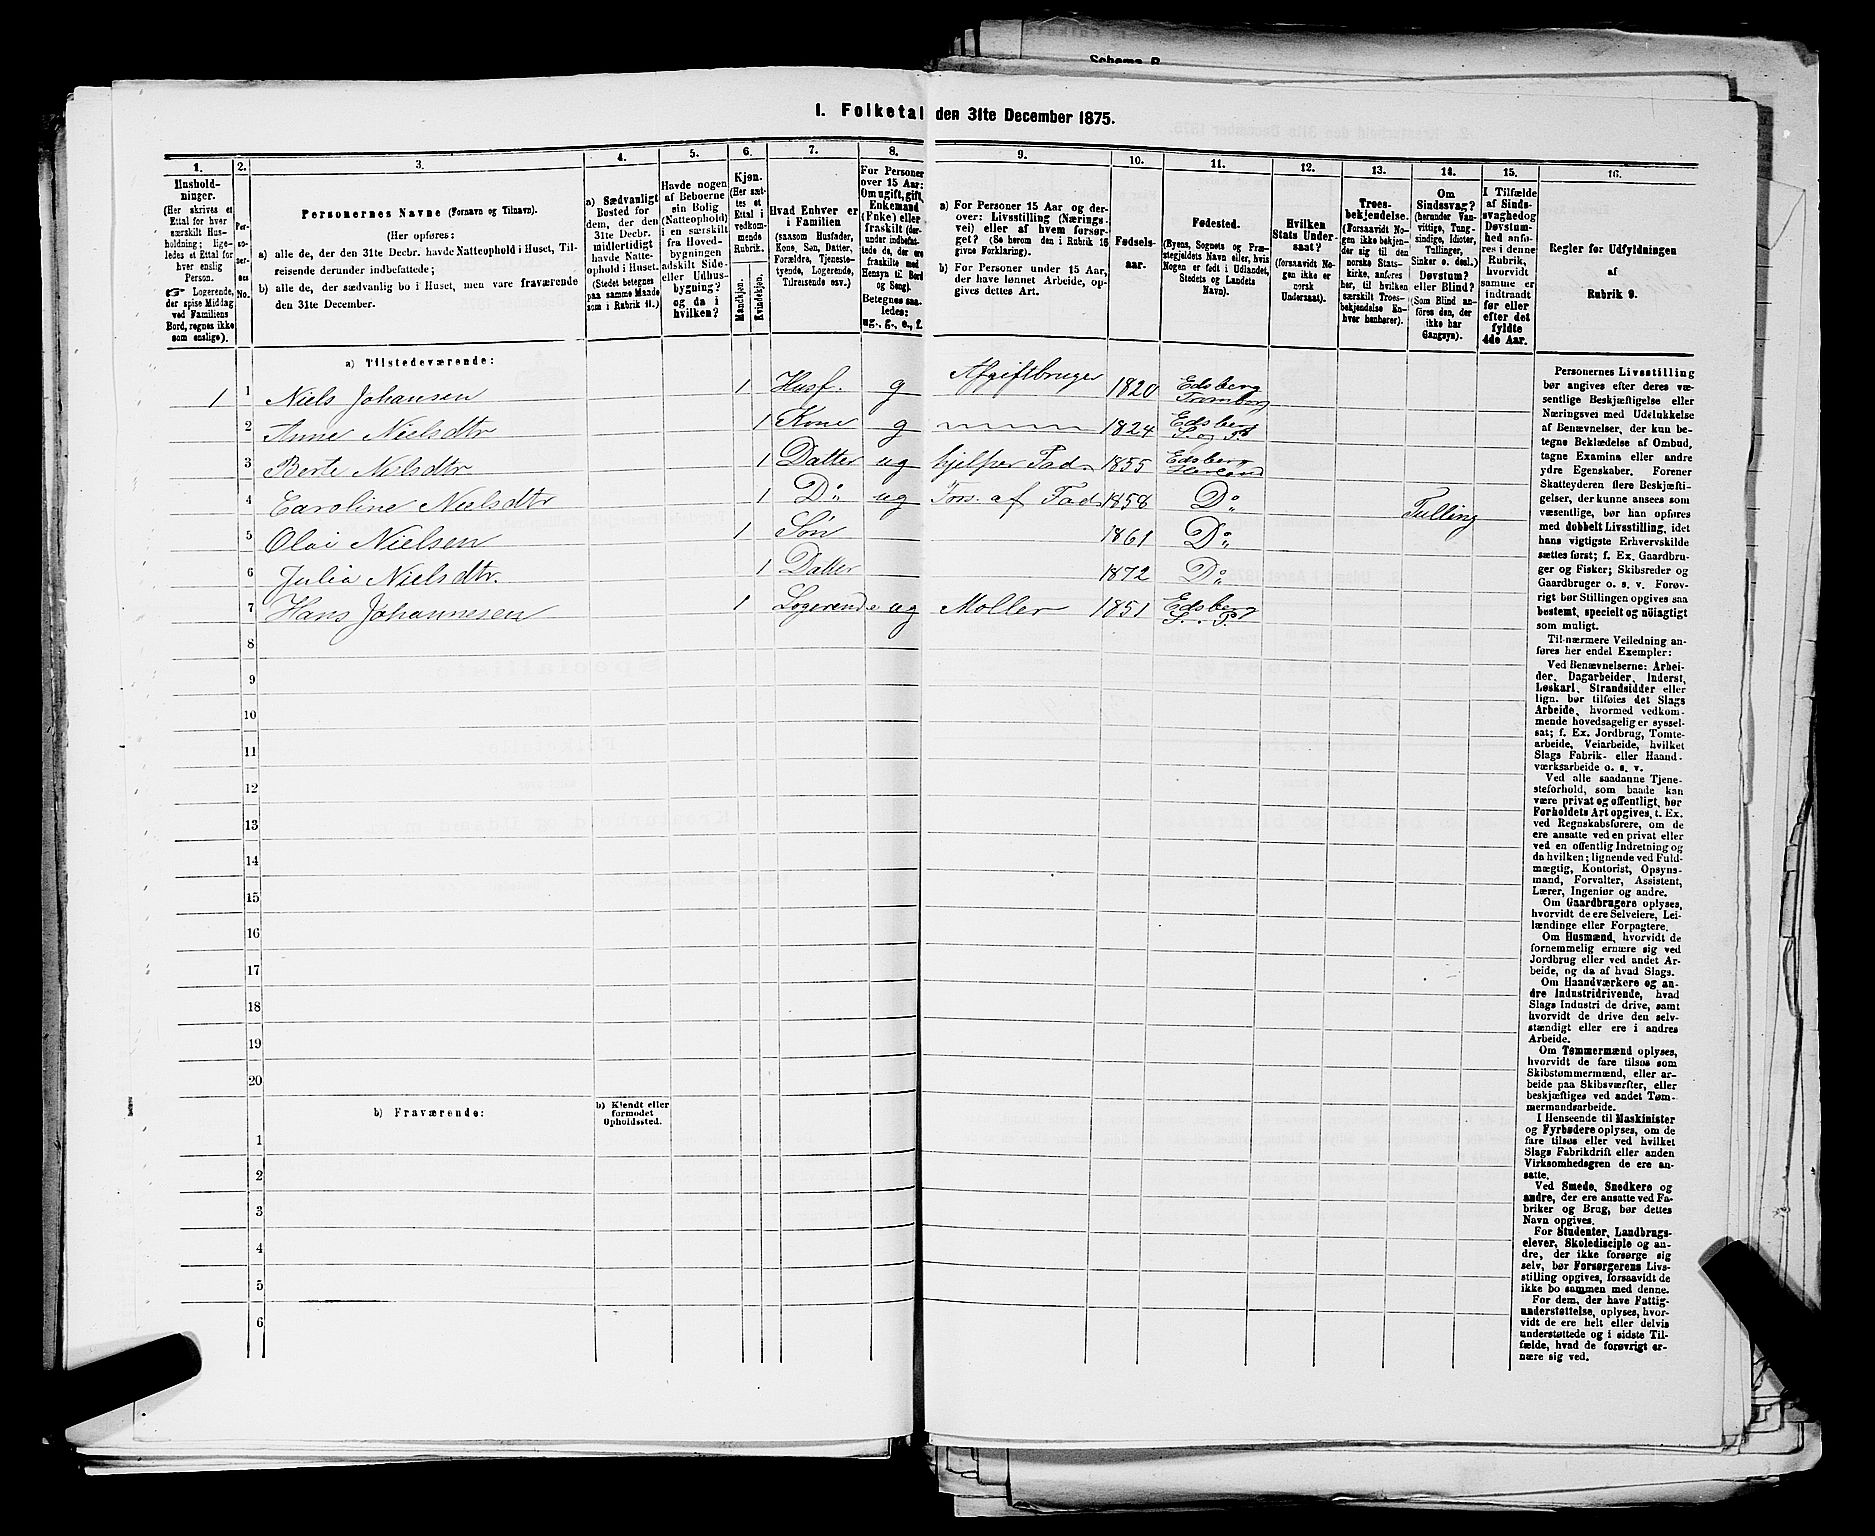 Schema B
I. Folketal den 31te December 1875.
1. 2. 3. 4. 5. 6. 7. 8. 9. 10. 11. 12. 13. 14. 15. 16.
Hushold-
ninger.
(Her skrives et
Ettal for hver
særskilt Hus-
holdning; lige-
ledes et Ettal for
hver enslig
Person.
☞ Logerende,
der spise Middag
ved Familiens
Bord, regnes ikke
som enslige).
Per-
so-
ner-
nes
No.
Personernes Navne (Fornavn og Tilnavn).
(Her opføres:
a) alle de, der den 31te Decbr. havde Natteophold i Huset, Til-
reisende derunder indbefattede;
b) alle de, der sædvanlig bo i Huset, men vare fraværende
den 31te December.
a) Sædvanligt
Bosted for
dem, der den
31te Decbr.
midlertidigt
havde Natte-
ophold i Huset.
(Stedet betegnes
paa samme Maade
som i Rubrik 11.)
Havde nogen
af Beboerne
sin Bolig
(Natteophold)
i en særskilt
fra Hoved-
bygningen
adskilt Side-
eller Udhus-
bygning?
og da i
hvilken?
Kjøn.
(Her sæt-
tes et
Ettal i
vedkom-
mende
Rubrik.
Mandkjøn.
Kvindekjøn.
Hvad Enhver er
i Familien
(saasom Husfader,
Kone, Søn, Datter,
Forældre, Tjeneste-
tyende, Logerende,
Tilreisende osv.)
For Personer
over 15 Aar:
Om ugift, gift,
Enkemand
(Enke) eller
fraskilt (der-
under indbefat-
tede de, der ere
fraskilte med
Hensyn til Bord
og Seng).
Betegnes saa-
ledes:
ug., g., e., f.
a) For Personer 15 Aar og der-
over: Livsstilling (Nærings-
vei) eller af hvem forsør-
get? (Se herom den i Rubrik 16
givne Forklaring).
b) For Personer under 15 Aar,
der have lønnet Arbeide, op-
gives dettes Art.
Fødsels-
aar.
Fødested.
(Byens, Sognets og Præ-
stegjeldets Navn eller, hvis
Nogen er født i Udlandet,
Stedets og Landets
Navn).
Hvilken
Stats Under-
saat?
(forsaavidt No-
gen ikke er
norsk
Undersaat).
Troes-
bekjendelse.
(Forsaavidt No-
gen ikke bekjen-
der sig til den
norske Stats-
kirke, anføres
her, til hvilken
særskilt Troes-
bekjendelse En-
hver henhører).
Om
Sindssvag?
(herunder Van-
vittige, Tung-
sindige, Idioter,
Tullinger,
Sinker o. desl.)
Døvstum?
eller Blind?
(Som Blind an-
føres den, der
ikke har
Gangsyn).
I Tilfælde
af Sinds-
svaghed og
Døvstum-
hed anfø-
res i denne
Rubrik,
hvorvidt
samme er
indtraadt
før eller
efter det
fyldte
4de Aar.
Regler for Udfyldningen
af
Rubrik 9.
a) Tilstedeværende:
1 1 Niels Johansen 1 Husf. g Afgiftbruger 1820 Edsberg Trømborg
2 Anne Nielsdtr 1 Kone g 1824 Edsberg S. og P.
3 Berte Nilsdtr 1 Datter ug hjelper Fad 1855 Edsberg Herland
4 Caroline Nielsdtr 1 Do ug Fors. af Fad 1858 Do Tulling
5 Olai Nielsen 1 Søn 1861 Do
6 Julia Nielsdtr. 1 Datter 1872 Do
7 Hans Johannesen 1 Logerende ug Moller 1851 Edsberg S. P.
8
9
10
11
12
13
14
15
16
17
18
19
20
b) Fraværende:
b) Kjendt eller
formodet
Opholdssted.
1
2
3
4
5
6
Personernes Livsstilling
bør angives efter deres væ-
sentlige Beskjæftigelse eller
Næringsvei med Udelukkelse
af Benævnelser, der kun be-
tegne Beklædelse af Ombud,
tagne Examina eller andre
ydre Egenskaber. Forener
Skatteyderen flere Beskjæfti-
gelser, der kunne ansees som
væsentlige, bør han opføres
med dobbelt Livsstilling, idet
hans vigtigste Erhvervskilde
sættes først; f. Ex. Gaardbru-
ger og Fisker; Skibsreder og
Gaardbruger o. s. v. Forøv-
rigt bør Stillingen opgives saa
bestemt, specielt og nöiagtigt
som muligt.
Til nærmere Veiledning an-
føres her endel Exempler:
Ved Benævnelserne: Arbei-
der, Dagarbeider, Inderst,
Løskarl, Strandsidder eller
lign. bør tilføies det Slags
Arbeide, hvormed vedkom-
mende hovedsagelig er syssel-
sat; f. Ex. Jordbrug, Tomte-
arbeide, Veiarbeide, hvilket
Slags Fabrik- eller Haand-
værksarbeide o. s. v.
Ved alle saadanne Tjene-
steforhold, som baade kan
være privat og offentligt, bør
Forholdets Art opgives, t. Ex.
ved Regnskabsførere, om de
ere ansatte ved en privat eller
ved en offentlig Indretning og
da hvilken; lignende ved Fuld-
mægtig, Kontorist, Opsyns-
mand, Forvalter, Assistent,
Lærer, Ingeniør og andre.
Om Gaardbrugere oplyses,
hvorvidt de ere Selveiere, Lei-
lændinge eller Forpagtere.
Om Husmænd, hvorvidt de
fornemmelig ernære sig ved
Jordbrug eller ved andet Ar-
beide, og da af hvad Slags.
Om Haandværkere og an-
dre Industridrivende, hvad
Slags Industri de drive, samt
hvorvidt de drive den selv-
stændigt eller ere i andres
Arbeide.
Om Tømmermænd oplyses,
hvorvidt de fare tilsøs som
Skibstømmermænd, eller ar-
beide paa Skibsværfter, eller
beskjæftiges ved andet Tøm-
mermandsarbeide.
I Henseende til Maskinister
og Fyrbødere oplyses, om de
fare tilsøs eller ved hvilket
Slags Fabrikdrift eller anden
Virksomhedsgren de ere an-
satte.
Ved Smede, Snedkere og
andre, der ere ansatte ved Fa-
briker og Brug, bør dettes
Navn opgives.
For Studenter, Landbrugs-
elever, Skoledisciple og an-
dre, der ikke forsørge sig
selv, bør Forsørgerens Livs-
stilling opgives, forsaavidt de
ikke bo sammen med denne.
For dem, der have Fattig-
understøttelse, oplyses, hvor-
vidt de ere helt eller delvis
understøttede og i sidste Til-
fælde, hvad de forøvrigt er-
nære sig ved.